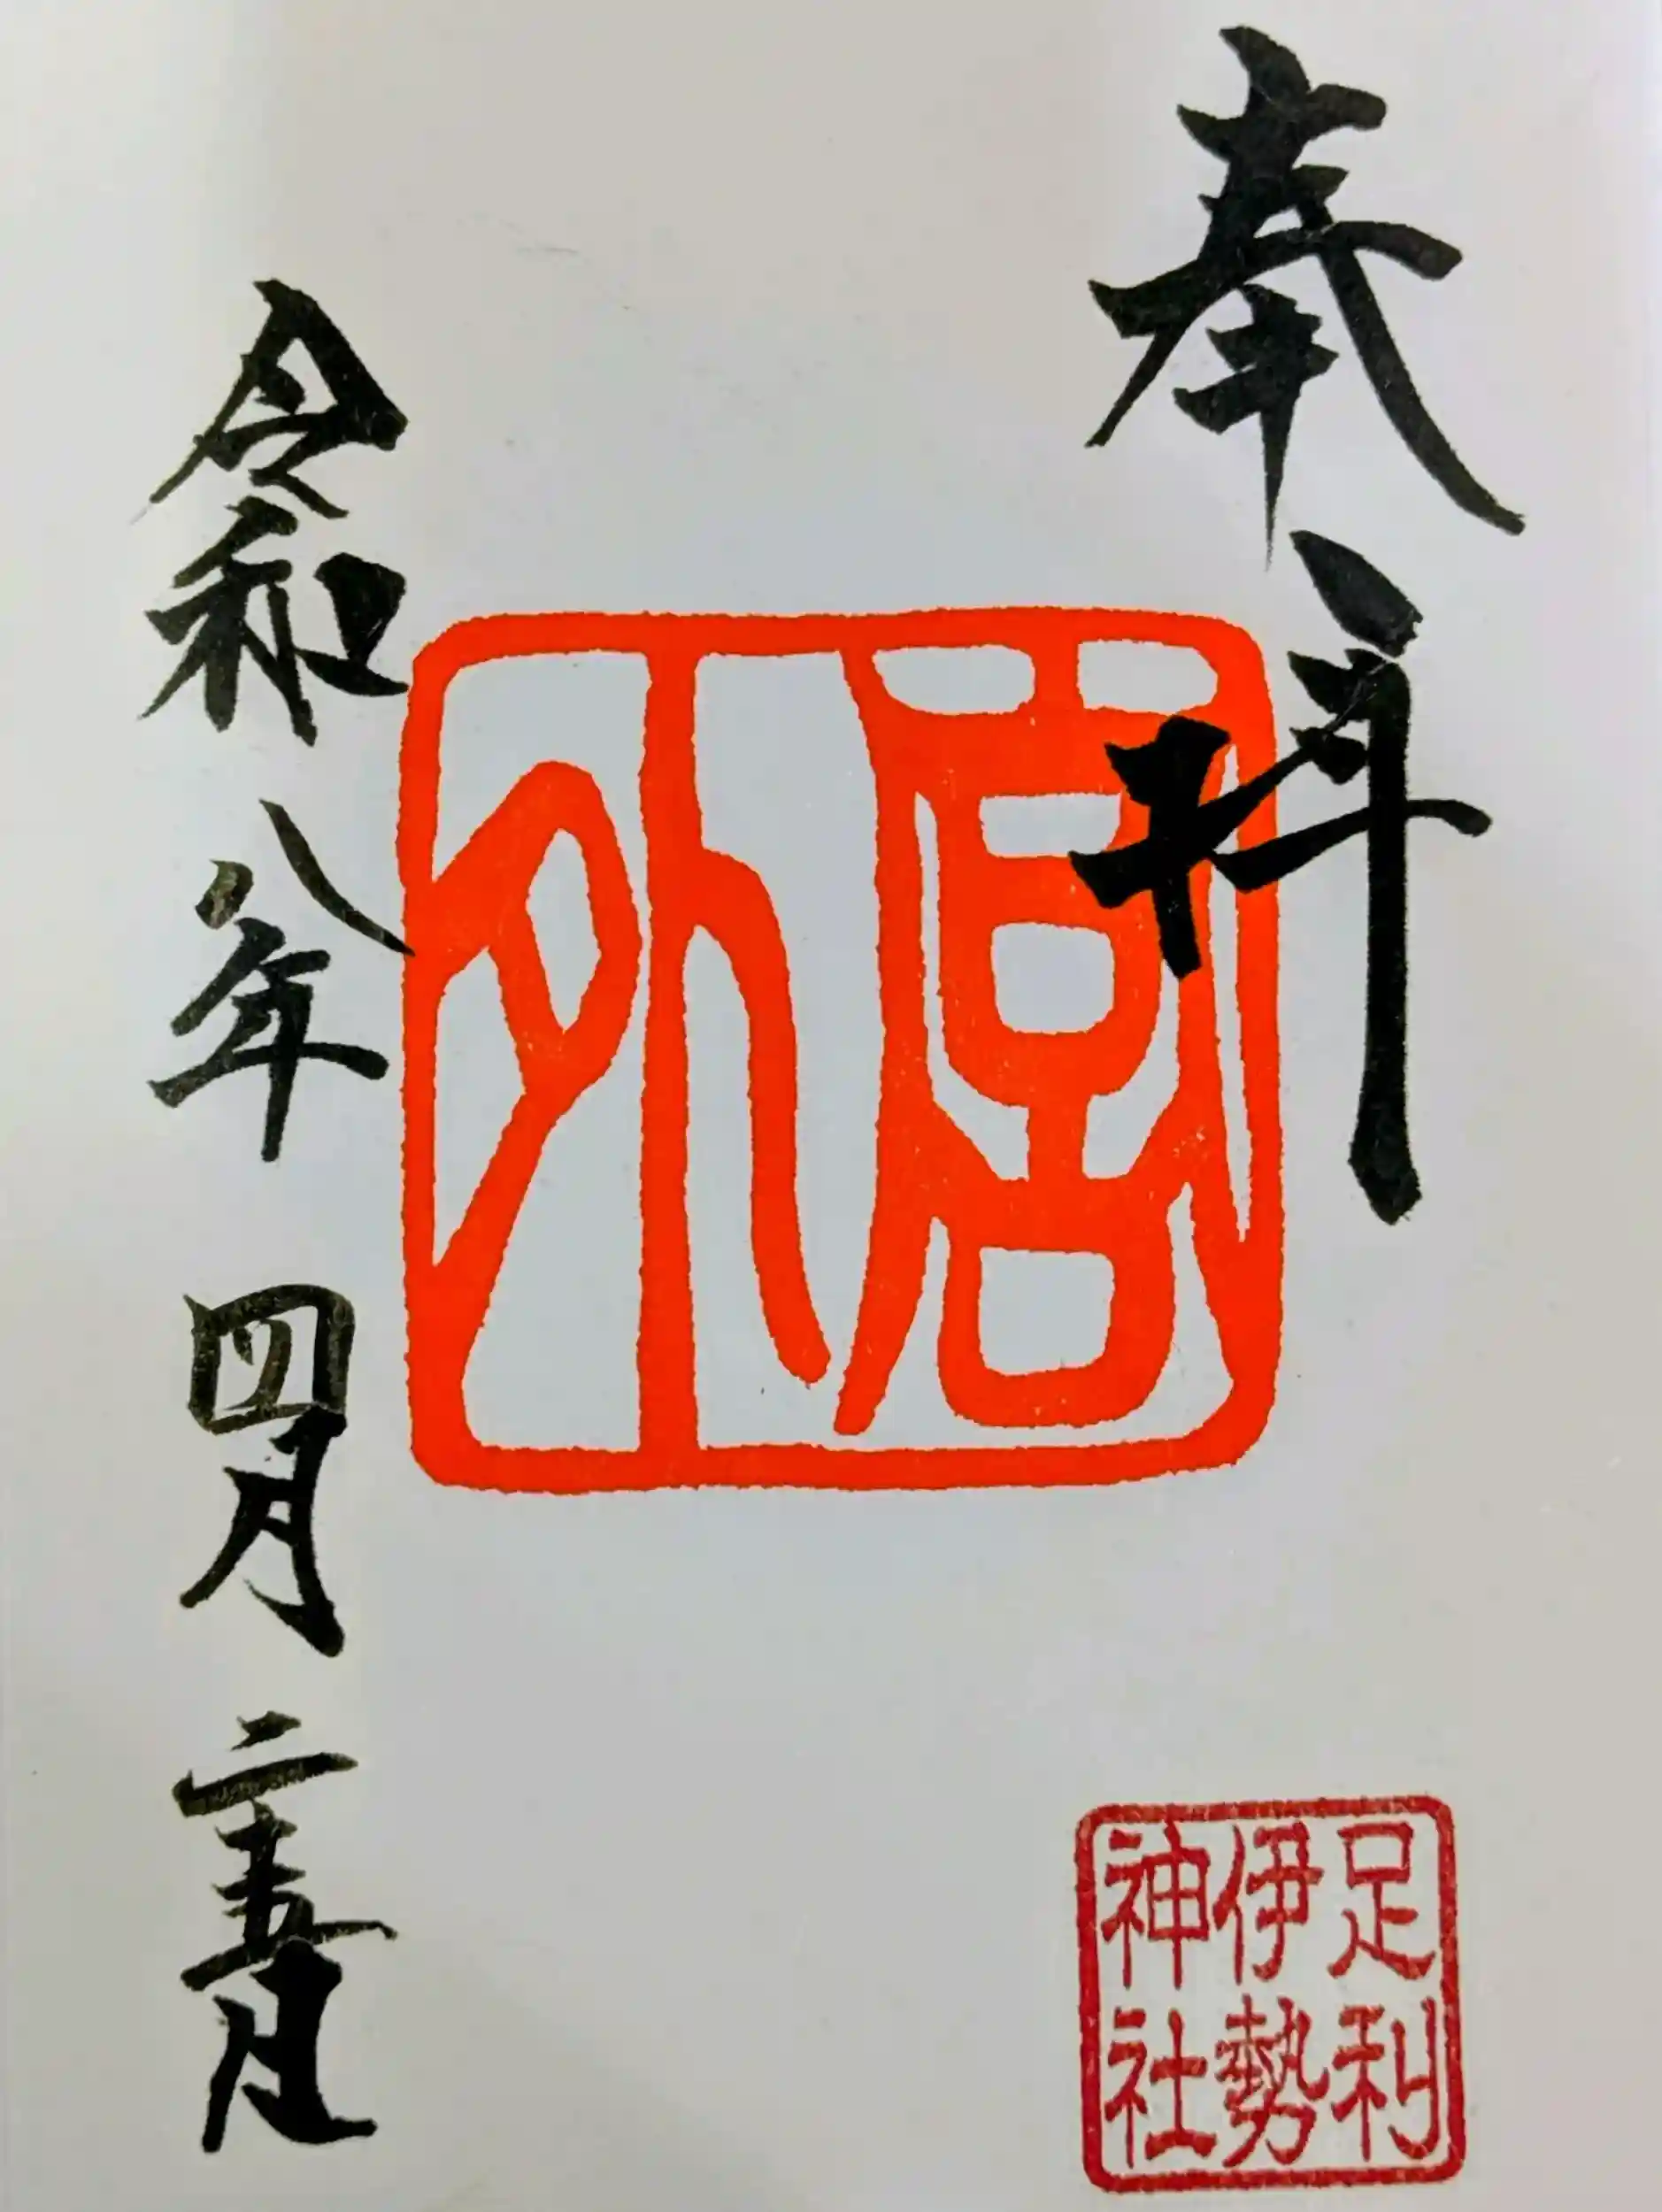 奉拝
令和八年四月二十五日
足利
伊勢
神社